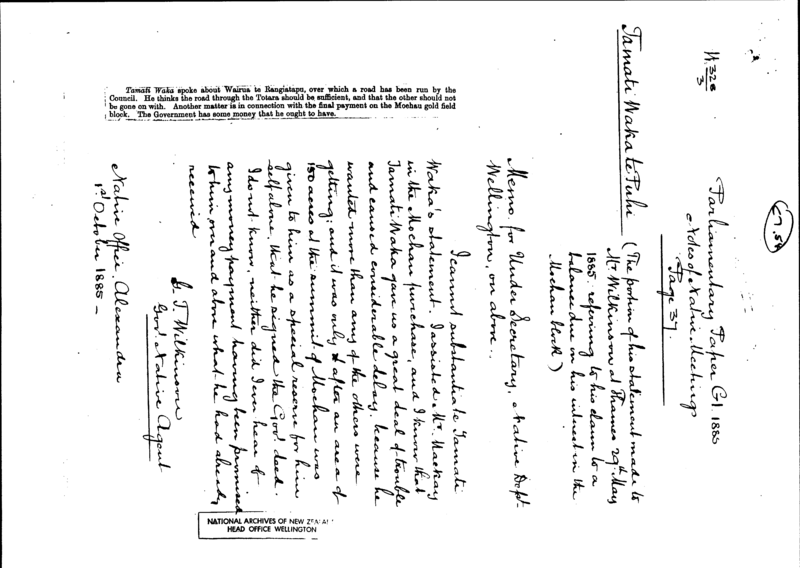 C7.54
W.328/3
Parliamentary Paper G1. 1885
Notes of Native Meetings
Page 37.
Tamati Waka te Puhi (The portion of his statement made to
Mr. Wilkinson at Thames 29th May
1885 referring to his claim to a
balance due on his interest in the
Moehau block)
Tamati Waka spoke about Wairua te Rangiatapu, over which a road has been run by the
Council. He thinks the road through the Totara should be sufficient, and that the other should not
be gone on with. Another matter is in connection with the final payment on the Moehau gold field
block. The Government has some money that he ought to have.
Memo. for Under Secretary, Native Dept.
Wellington, on above.
I cannot substantiate Tamati
Waka's statement. I assisted Mr. Mackay
in the Moehau purchase, and I know that
Tamati Waka gave us a great deal of trouble
and caused considerable delay, because he
wanted more than any of the others were
getting; and it was only after an area of
150 acres at the summit of Moehau was
given to him as a special reserve for him
self alone, that he signed the Gov. deed.
I do not know, neither did I ever hear of
any money payment having been promised
to him, over and above what he had already
received
G. T. Wilkinson
Gov. Native Agent
Native Office, Alexandra
1st October 1885 –
NATIONAL ARCHIVES OF NEW ZEALA
HEAD OFFICE WELLINGTON